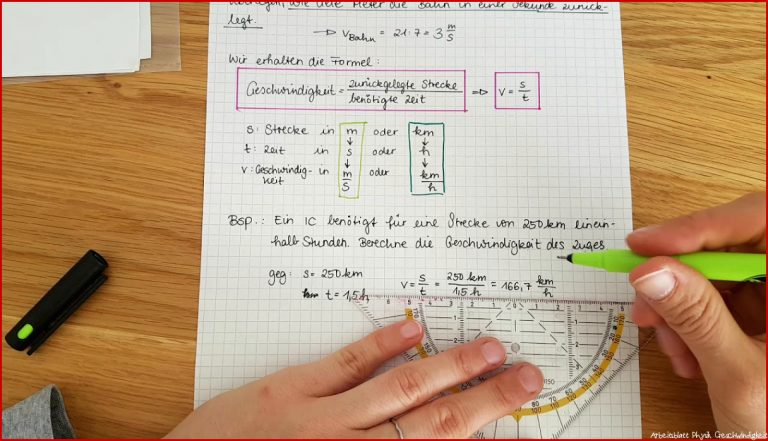 wie viele Meter die Bahn in einer Sekunde zurück-
legt.
→ v Bahn = 21 : 7 = 3 m/s
Wir erhalten die Formel:
Geschwindigkeit = zurückgelegte Strecke / benötigte Zeit ⇒ v = s/t
s: Strecke in m oder km
t: Zeit in s oder h
v: Geschwindig- in m/s oder km/h
keit
Bsp.: Ein IC benötigt für eine Strecke von 250 km einein-
halb Stunden. Berechne die Geschwindigkeit des Zuges
geg: s = 250 km v = s/t = 250 km / 1,5 h = 166,7 km/h
t = 1,5 h
Arbeitsblatt Physik Geschwindigkeit